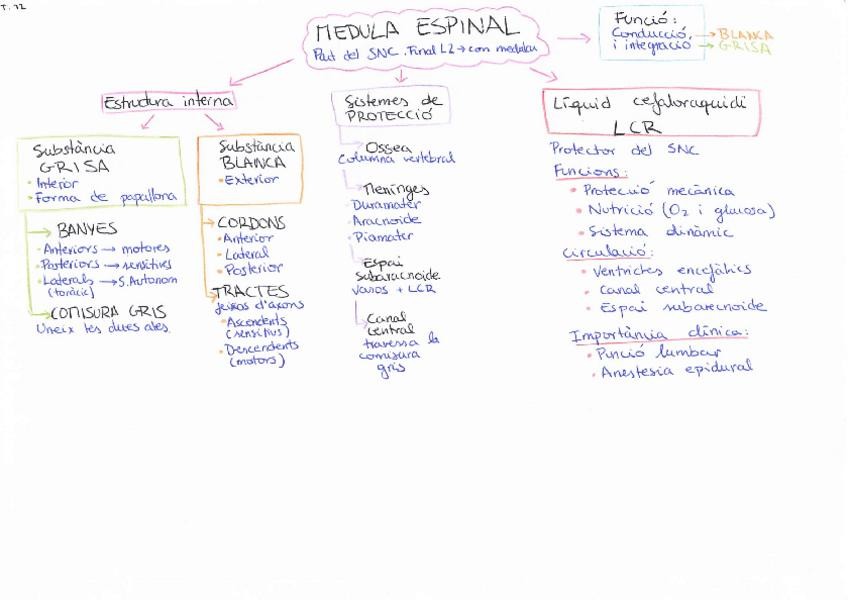 T.12
MEDULA ESPINAL
Part del SNC. Final L2 → con medular
Funció:
Conducció → BLANCA
i integració → GRISA
Estructura interna
Substància
GRISA
• Interior
• Forma de papallona
BANYES
• Anteriors → motores
• Posteriors → sensitives
• Laterals → S. Autonom
(toràcic)
COMISURA GRIS
Uneix les dues ales
Substància
BLANCA
• Exterior
CORDONS
• Anterior
• Lateral
• Posterior
TRACTES
feixos d'axons
• Ascendents
(sensitius)
• Descendents
(motors)
Sistemes de
PROTECCIÓ
Ossea
Columna vertebral
Meninges
• Duramater
• Aracnoide
• Piamater
Espai
subaracnoide
vasos + LCR
Canal
Central
travessa la
comisura
gris
Líquid cefaloraquidi
LCR
Protector del SNC
Funcions:
• Protecció mecànica
• Nutrició (O2 i glucosa)
• Sistema dinàmic
Circulació:
• Ventricles encefàlics
• Canal central
• Espai subaracnoide
Importància clínica:
• Punció lumbar
• Anestesia epidural